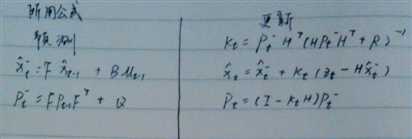 所用公式
预测
x̂ₜ⁻ = F x̂ₜ₋₁ + B uₜ₋₁
Pₜ⁻ = F Pₜ₋₁ Fᵀ + Q
更新
Kₜ = Pₜ⁻ Hᵀ (H Pₜ⁻ Hᵀ + R)⁻¹
x̂ₜ = x̂ₜ⁻ + Kₜ (zₜ - H x̂ₜ⁻)
Pₜ = (I - Kₜ H) Pₜ⁻